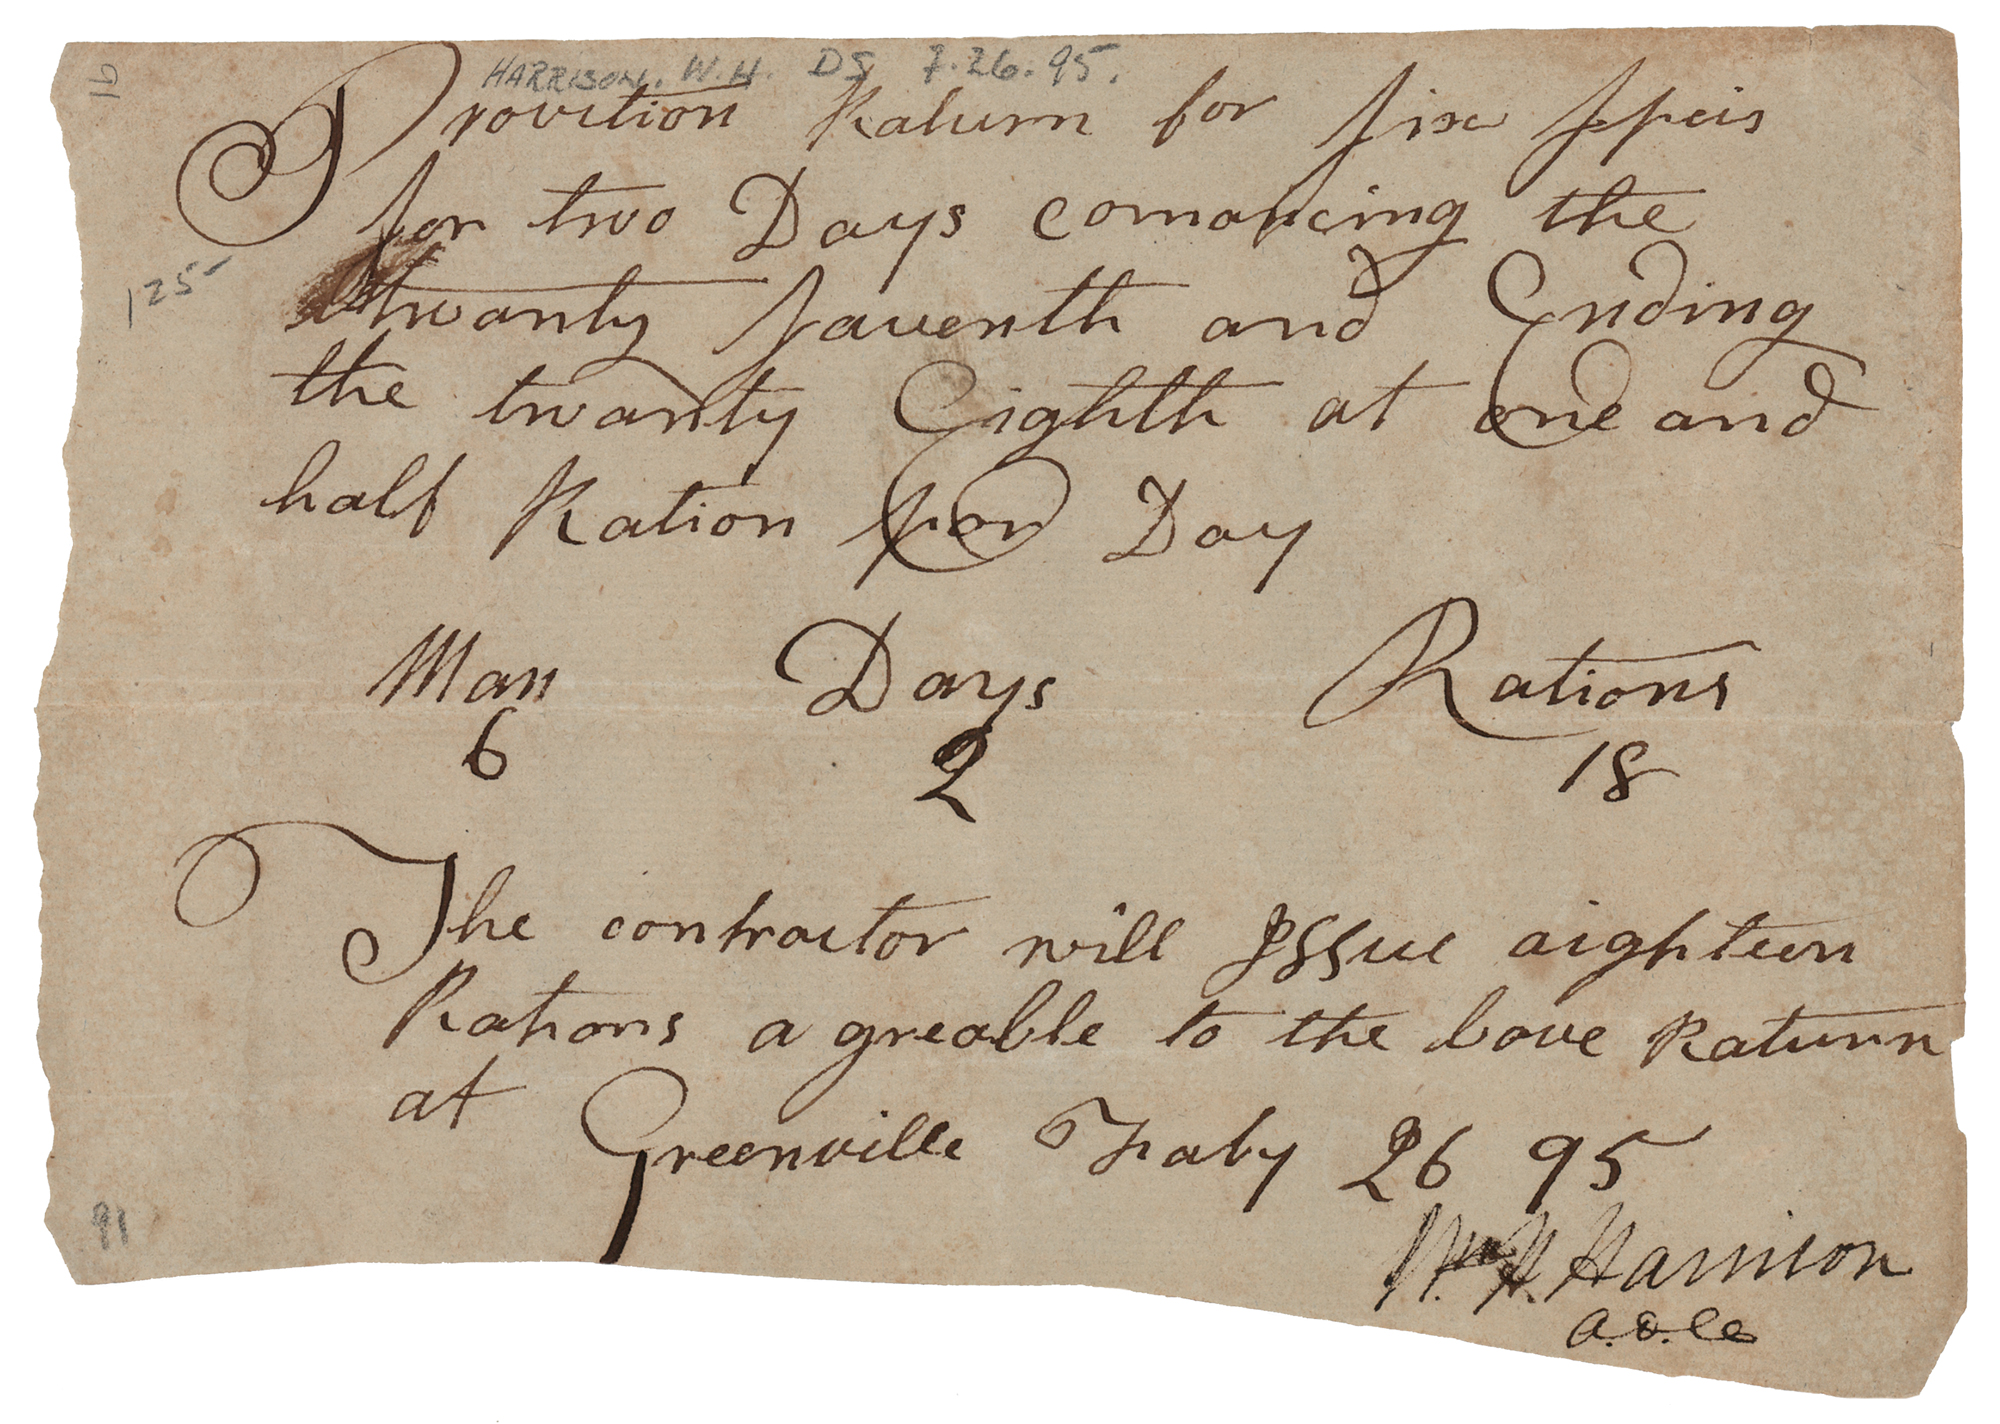 HARRISON. W.H. DS 7.26.95.
Provition Raturn for six speis
for two Days comancing the
125-
twanty savonth and Ending
the twanty Eighth at one and
half Ration par Day
Man Days Rations
6 2 18
The contractor will Issue aighteen
Rations a greable to the bove Raturn
at Greenville Faby 26 95
Wm. H. Harrison
a.d.Ca
91